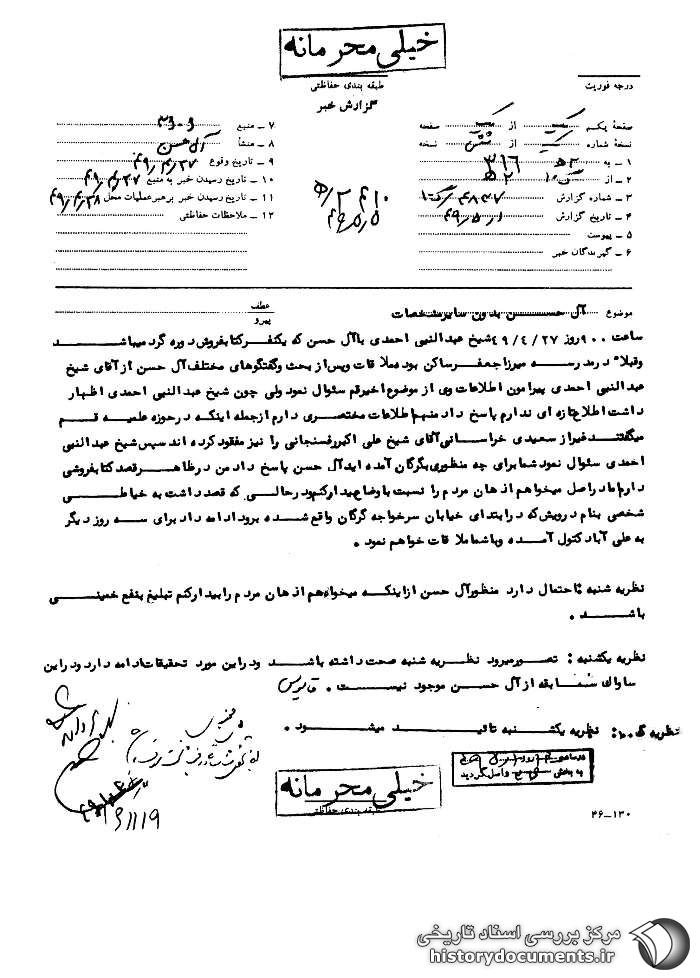 خیلی محرمانه
طبقه بندی حفاظتی
گزارش خبر
درجه فوریت
صفحهٔ یکم یک از یک صفحه
نسخهٔ شماره یک از شش نسخه
۱ ـ به ۳۱۶
۲ ـ از
۳ ـ شماره گزارش
۴ ـ تاریخ گزارش ۴۹٫۵٫۱
۵ ـ پیوست
۶ ـ گیرندگان خبر
۷ ـ منبع
۸ ـ منشأ آل حسن
۹ ـ تاریخ وقوع ۴۹٫۴٫۲۷
۱۰ ـ تاریخ رسیدن خبر به منبع ۴۹٫۴٫۲۷
۱۱ ـ تاریخ رسیدن خبر برهبر عملیات محل ۴۹٫۴٫۲۸
۱۲ ـ ملاحظات حفاظتی
موضوع آل حسن بدون سایر مشخصات
عطف
پیرو
ساعت ۹۰۰ روز ۴۹/۴/۲۷ شیخ عبدالنبی احمدی با آل حسن که یکنفر کتابفروش دوره گرد میباشد
و قبلا" در مدرسه میرزا جعفر ساکن بوده ملاقات و پس از بحث و گفتگوهای مختلف آل حسن از آقای شیخ
عبدالنبی احمدی پیرامون اطلاعات وی از موضوع اخیر قم سئوال نمود ولی چون شیخ عبدالنبی احمدی اظهار
داشت اطلاع تازه ای ندارم پاسخ داد منهم اطلاعات مختصری دارم از جمله اینکه در حوزه علمیه قم
میگفتند غیر از سعیدی خراسانی آقای شیخ علی اکبر رفسنجانی را نیز مفقود کرده اند سپس شیخ عبدالنبی
احمدی سئوال نمود شما برای چه منظوری بگرگان آمده اید آل حسن پاسخ داد من در ظاهر قصد کتابفروشی
دارم اما در اصل میخواهم اذهان مردم را نسبت با وضاع بیدار کنم و در حالی که قصد داشت به خیاطی
شخصی بنام درویش که در ابتدای خیابان سرخواجه گرگان واقع شده برود ادامه داد برای سه روز دیگر
به علی آباد کتول آمده و با شما ملاقات خواهم نمود .
نظریه شنبه : احتمال دارد منظور آل حسن از اینکه میخواهم اذهان مردم را بیدار کنم تبلیغ بنفع خمینی
باشد .
نظریه یکشنبه : تصور میرود نظریه شنبه صحت داشته باشد و در این مورد تحقیقات ادامه دارد و در این
ساواک سابقه از آل حسن موجود نیست .
نظریه : نظریه یکشنبه تائید میشود .
به بخش واصل گردید
خیلی محرمانه
طبقه بندی حفاظتی
۴۶-۱۳۰
مرکز بررسی اسناد تاریخی
historydocuments.ir